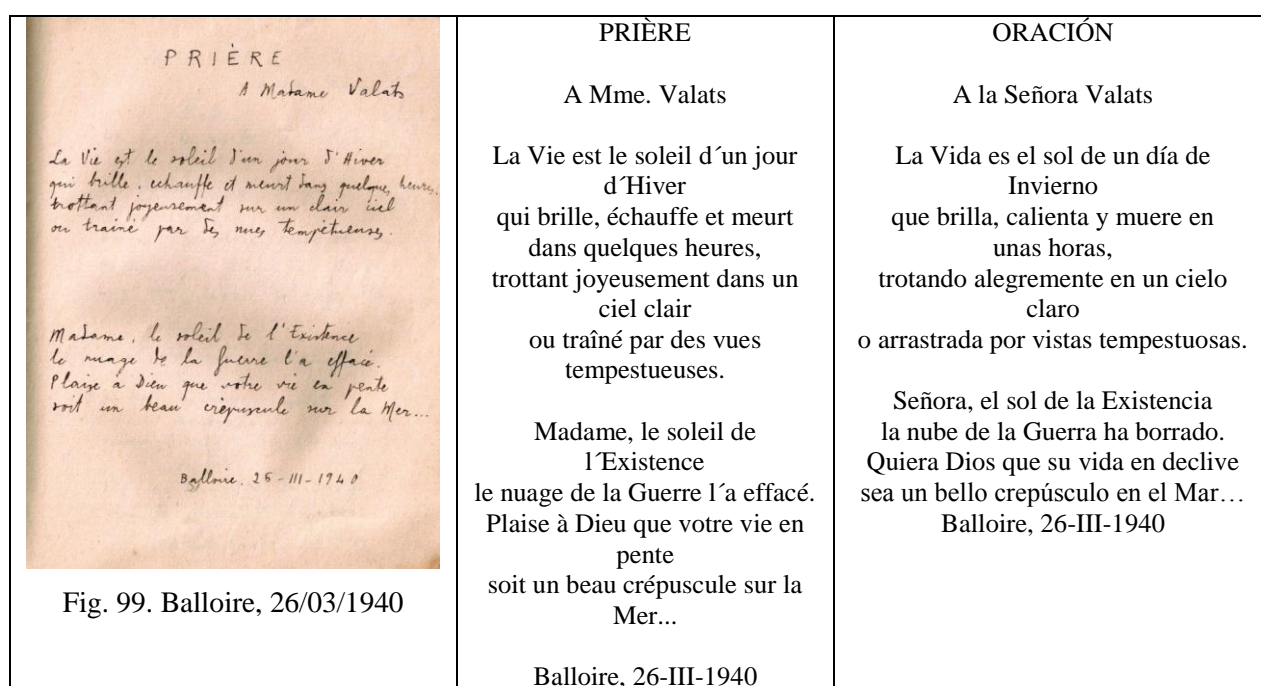 PRIÈRE
A Madame Valats
La Vie est le soleil d'un jour d'Hiver
qui brille, echauffe et meurt dans quelques heures,
trottant joyeusement sur un clair ciel
ou trainé par des nues tempétueuses.
Madame, le soleil de l'Existence
le nuage de la Guerre l'a effacé.
Plaise à Dieu que votre vie en pente
soit un beau crépuscule sur la Mer...
Balloire, 26-III-1940
Fig. 99. Balloire, 26/03/1940
PRIÈRE
A Mme. Valats
La Vie est le soleil d´un jour
d´Hiver
qui brille, échauffe et meurt
dans quelques heures,
trottant joyeusement dans un
ciel clair
ou traîné par des vues
tempestueuses.
Madame, le soleil de
l´Existence
le nuage de la Guerre l´a effacé.
Plaise à Dieu que votre vie en
pente
soit un beau crépuscule sur la
Mer...
Balloire, 26-III-1940
ORACIÓN
A la Señora Valats
La Vida es el sol de un día de
Invierno
que brilla, calienta y muere en
unas horas,
trotando alegremente en un cielo
claro
o arrastrada por vistas tempestuosas.
Señora, el sol de la Existencia
la nube de la Guerra ha borrado.
Quiera Dios que su vida en declive
sea un bello crepúsculo en el Mar…
Balloire, 26-III-1940